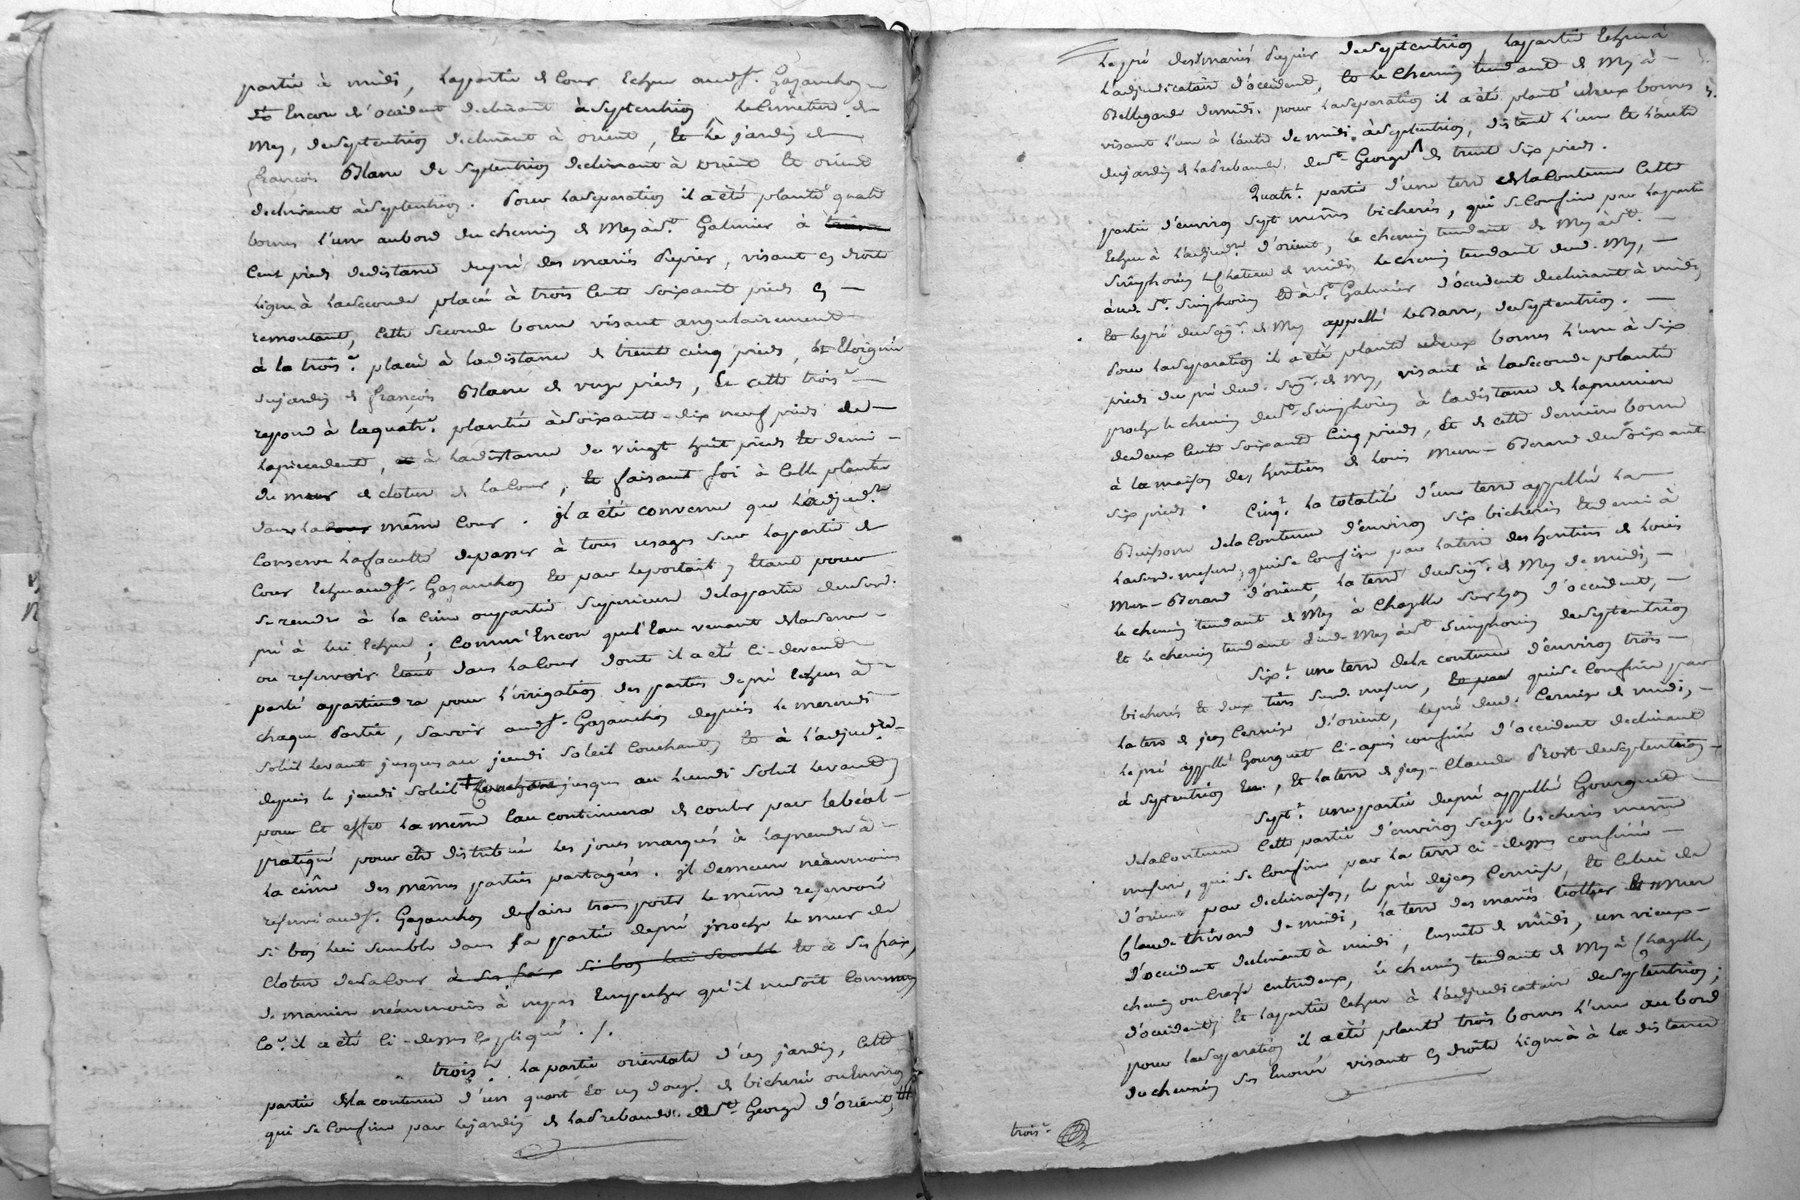 partie à midi, la partie de cour echue audt. Gazanchon
et encore d'occident declinant à septentrion le cimetiere de
Mey, de septentrion declinant à orient, et le jardin de
françois Blanc de septentrion declinant à orient et orient
declinant à septentrion. Pour la separation il a été planté quatre
bornes l'une au bord du chemin de Mey à St. Galmier à
cent pieds de distance du pré des mariés Pepier, visant en droite
ligne à la seconde placée à trois cents soixante pieds en
remontant, cette seconde borne visant angulairement
à la trois.e placée à la distance de trente cinq pieds, et eloignée
du jardin de françois Blanc de onze pieds, et cette trois.e
repond à la quatr.e plantée à soixante-dix neuf pieds de
la precedente, à la distance de vingt huit pieds et demi
du mur de cloture de la cour, et faisant foi à celle plantée
dans la même cour. il a été convenu que l'adjud.re
conserve la faculté de passer à tous usages sur la partie de
cour echue audt. Gazanchon et par le portail y etant pour
se rendre à la cime ou partie superieure de la partie dudit
pré à lui echue; comm'encore que l'eau venant de la serve
ou reservoir etant dans la cour dont il a été ci-devant
parlé appartiendra pour l'irrigation des parties de pré echues à
chaque partie, savoir audt. Gazanchon depuis le mercredi
soleil levant jusques au jeudi soleil couchant, et à l'adjud.re
depuis le jeudi soleil couchant jusques au lundi soleil levant
pour cet effet la même eau continuera de couler par le béal
pratiqué pour être distribuée les jours marqués à la prendre à
la cime des mêmes parties partagées. il demeure néanmoins
reservé audt. Gazanchon de faire transporter le même reservoir
si bon lui semble dans sa partie de pré proche le mur de
cloture de la cour à ses frais si bon lui semble et à ses frais,
de maniere néanmoins à ne pas empecher qu'il ne soit commun
co.e il a été ci-dessus expliqué ./.
trois.t la partie orientale d'un jardin, cette
partie de la contenue d'un quart et un douz.e de bicherée ou environ
qui se confine par le jardin de la Prebande de St. George d'orient,
le pré des mariés Pepier de septentrion, la partie echue à
l'adjudicataire d'occident, et le chemin tendant de Mey à
Bellegarde de midi. pour la separation il a été planté deux bornes
visant l'une à l'autre de midi à septentrion, distante l'une de l'autre
du jardin de la Prebande de St. George de trente six pieds.
Quatr.t partie d'une terre de la contenue cette
partie d'environ sept mêmes bicherées, qui se confine par la partie
echue à l'adjud.re d'orient, le chemin tendant de Mey à St.
Simphorien le Chateau de midi, le chemin tendant dud. Mey,
aud. St. Simphorien et à St. Galmier d'occident declinant à midi,
et le pré du Sgr. de Mey appellé le Barre, de septentrion.
Pour la separation il a été planté deux bornes l'une à six
pieds du pré dud. Sgr. de Mey, visant à la seconde plantée
proche le chemin de St. Simphorien à la distance de la premiere
de deux cents soixante cinq pieds, et de cette derniere borne
à la maison des heritiers de Louis Mure-Berard de soixante
six pieds. Cinq.t la totalité d'une terre appellée la
Buissonne de la contenue d'environ six bicherées et demi à
lad. mesure, qui se confine par la terre des heritiers de Louis
Mure-Berard d'orient, la terre du Sgr. de Mey de midi,
le chemin tendant de Mey à Chazelle sur Lyon d'occident,
et le chemin tendant dud. Mey à St. Simphorien de septentrion
Six.t une terre de la contenue d'environ trois
bicherées et deux tiers sud. mesure, et par qui se confine par
la terre de jean Cernise d'orient, le pré dud. Cernise de midi,
le pré appellé Gourguet ci-apres confiné d'occident declinant
à septentrion, et la terre de jean-Claude Benoit de septentrion
Sept.t une partie de pré appellé Gourguet
de la contenue cette partie d'environ seize bicherées même
mesure, qui se confine par la terre ci-dessus confinée
d'orient par declinaison, le pré de jean Cernise, et celui de
Claude thivard de midi, la terre des mariés
d'occident declinant à midi, ensuite de midi, un vieux
chemin ou crase entredeux, le chemin tendant de Mey à Chazelle,
d'occident, et la partie echue à l'adjudicataire de septentrion;
pour la separation il a été planté trois bornes l'une au bord
du chemin sus enoncé visant en droite ligne à la distance
trois.e